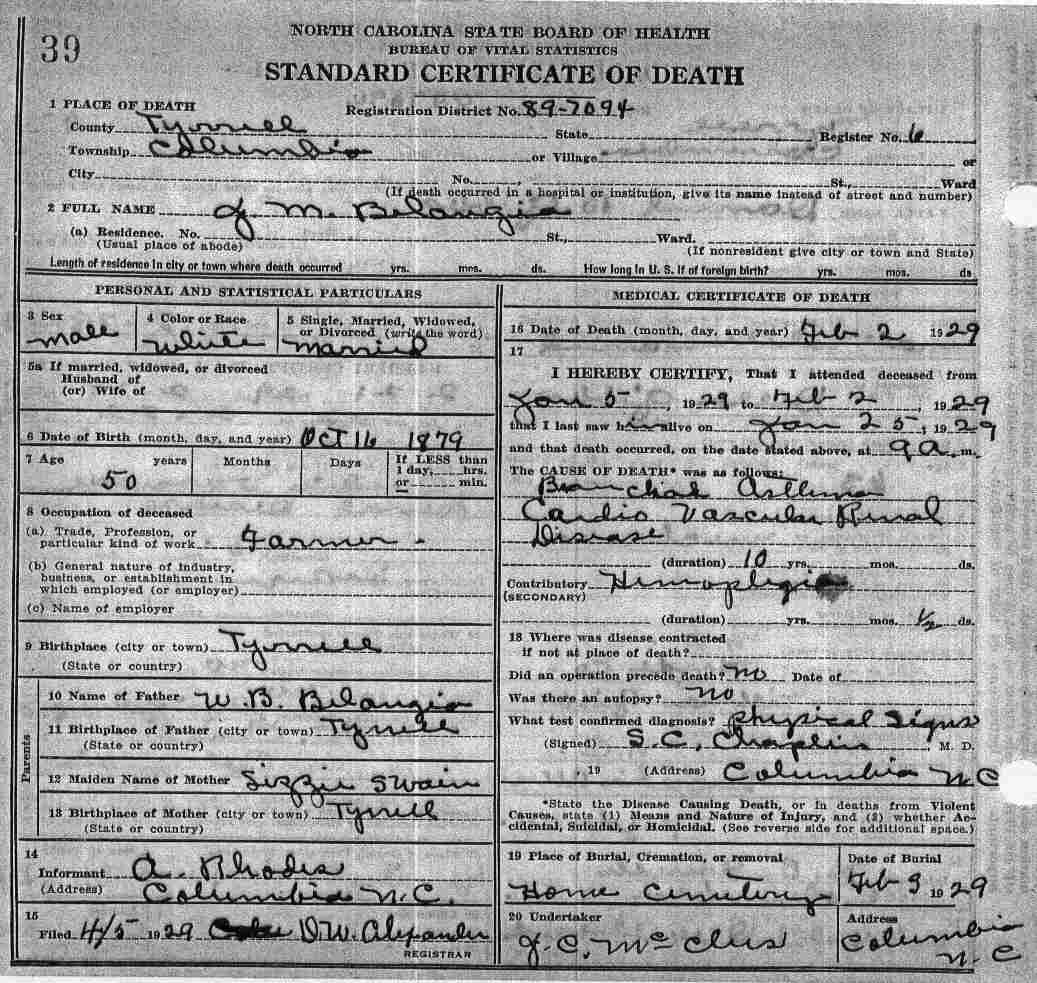 39
NORTH CAROLINA STATE BOARD OF HEALTH
BUREAU OF VITAL STATISTICS
STANDARD CERTIFICATE OF DEATH
1 PLACE OF DEATH
Registration District No. 89-7094
County Tyrrell State Register No. 6
Township Columbia or Village or
City No. , St., Ward
(If death occurred in a hospital or institution, give its name instead of street and number)
2 FULL NAME J. M. Belangia
(a) Residence. No. St., Ward.
(Usual place of abode) (If nonresident give city or town and State)
Length of residence in city or town where death occurred yrs. mos. ds. How long in U. S. if of foreign birth? yrs. mos. ds
PERSONAL AND STATISTICAL PARTICULARS
3 Sex
male
4 Color or Race
White
5 Single, Married, Widowed,
or Divorced (write the word)
Married
5a If married, widowed, or divorced
Husband of
(or) Wife of
6 Date of Birth (month, day, and year) Oct 16 1879
7 Age years Months Days If LESS than
50 1 day, hrs.
or min.
8 Occupation of deceased
(a) Trade, Profession, or
particular kind of work Farmer
(b) General nature of industry,
business, or establishment in
which employed (or employer)
(c) Name of employer
9 Birthplace (city or town) Tyrrell
(State or country)
Parents
10 Name of Father W. B. Belangia
11 Birthplace of Father (city or town) Tyrrell
(State or country)
12 Maiden Name of Mother Lizzie Swain
13 Birthplace of Mother (city or town) Tyrrell
(State or country)
14
Informant A. Rhodes
(Address) Columbia N.C.
15
Filed 4/5 1929 D.W. Alexander
REGISTRAR
MEDICAL CERTIFICATE OF DEATH
16 Date of Death (month, day, and year) Feb 2 1929
17
I HEREBY CERTIFY, That I attended deceased from
Jan 5, 1929 to Feb 2, 1929
that I last saw him alive on Jan 25, 1929
and that death occurred, on the date stated above, at 9 A. m.
The CAUSE OF DEATH* was as follows:
Bronchial Asthma
Cardio Vascular Renal
Disease
(duration) 10 yrs. mos. ds.
Contributory Hemoplegia
(SECONDARY)
(duration) yrs. mos. 1/2 ds.
18 Where was disease contracted
if not at place of death?
Did an operation precede death? No Date of
Was there an autopsy? No
What test confirmed diagnosis? Physical Signs
(Signed) S.C. Chaplin M. D.
, 19 (Address) Columbia N C
*State the Disease Causing Death, or in deaths from Violent
Causes, state (1) Means and Nature of Injury, and (2) whether Ac-
cidental, Suicidal, or Homicidal. (See reverse side for additional space.)
19 Place of Burial, Cremation, or removal
Home Cemetery
Date of Burial
Feb 3 1929
20 Undertaker
J. C. McClus
Address
Columbia
N. C